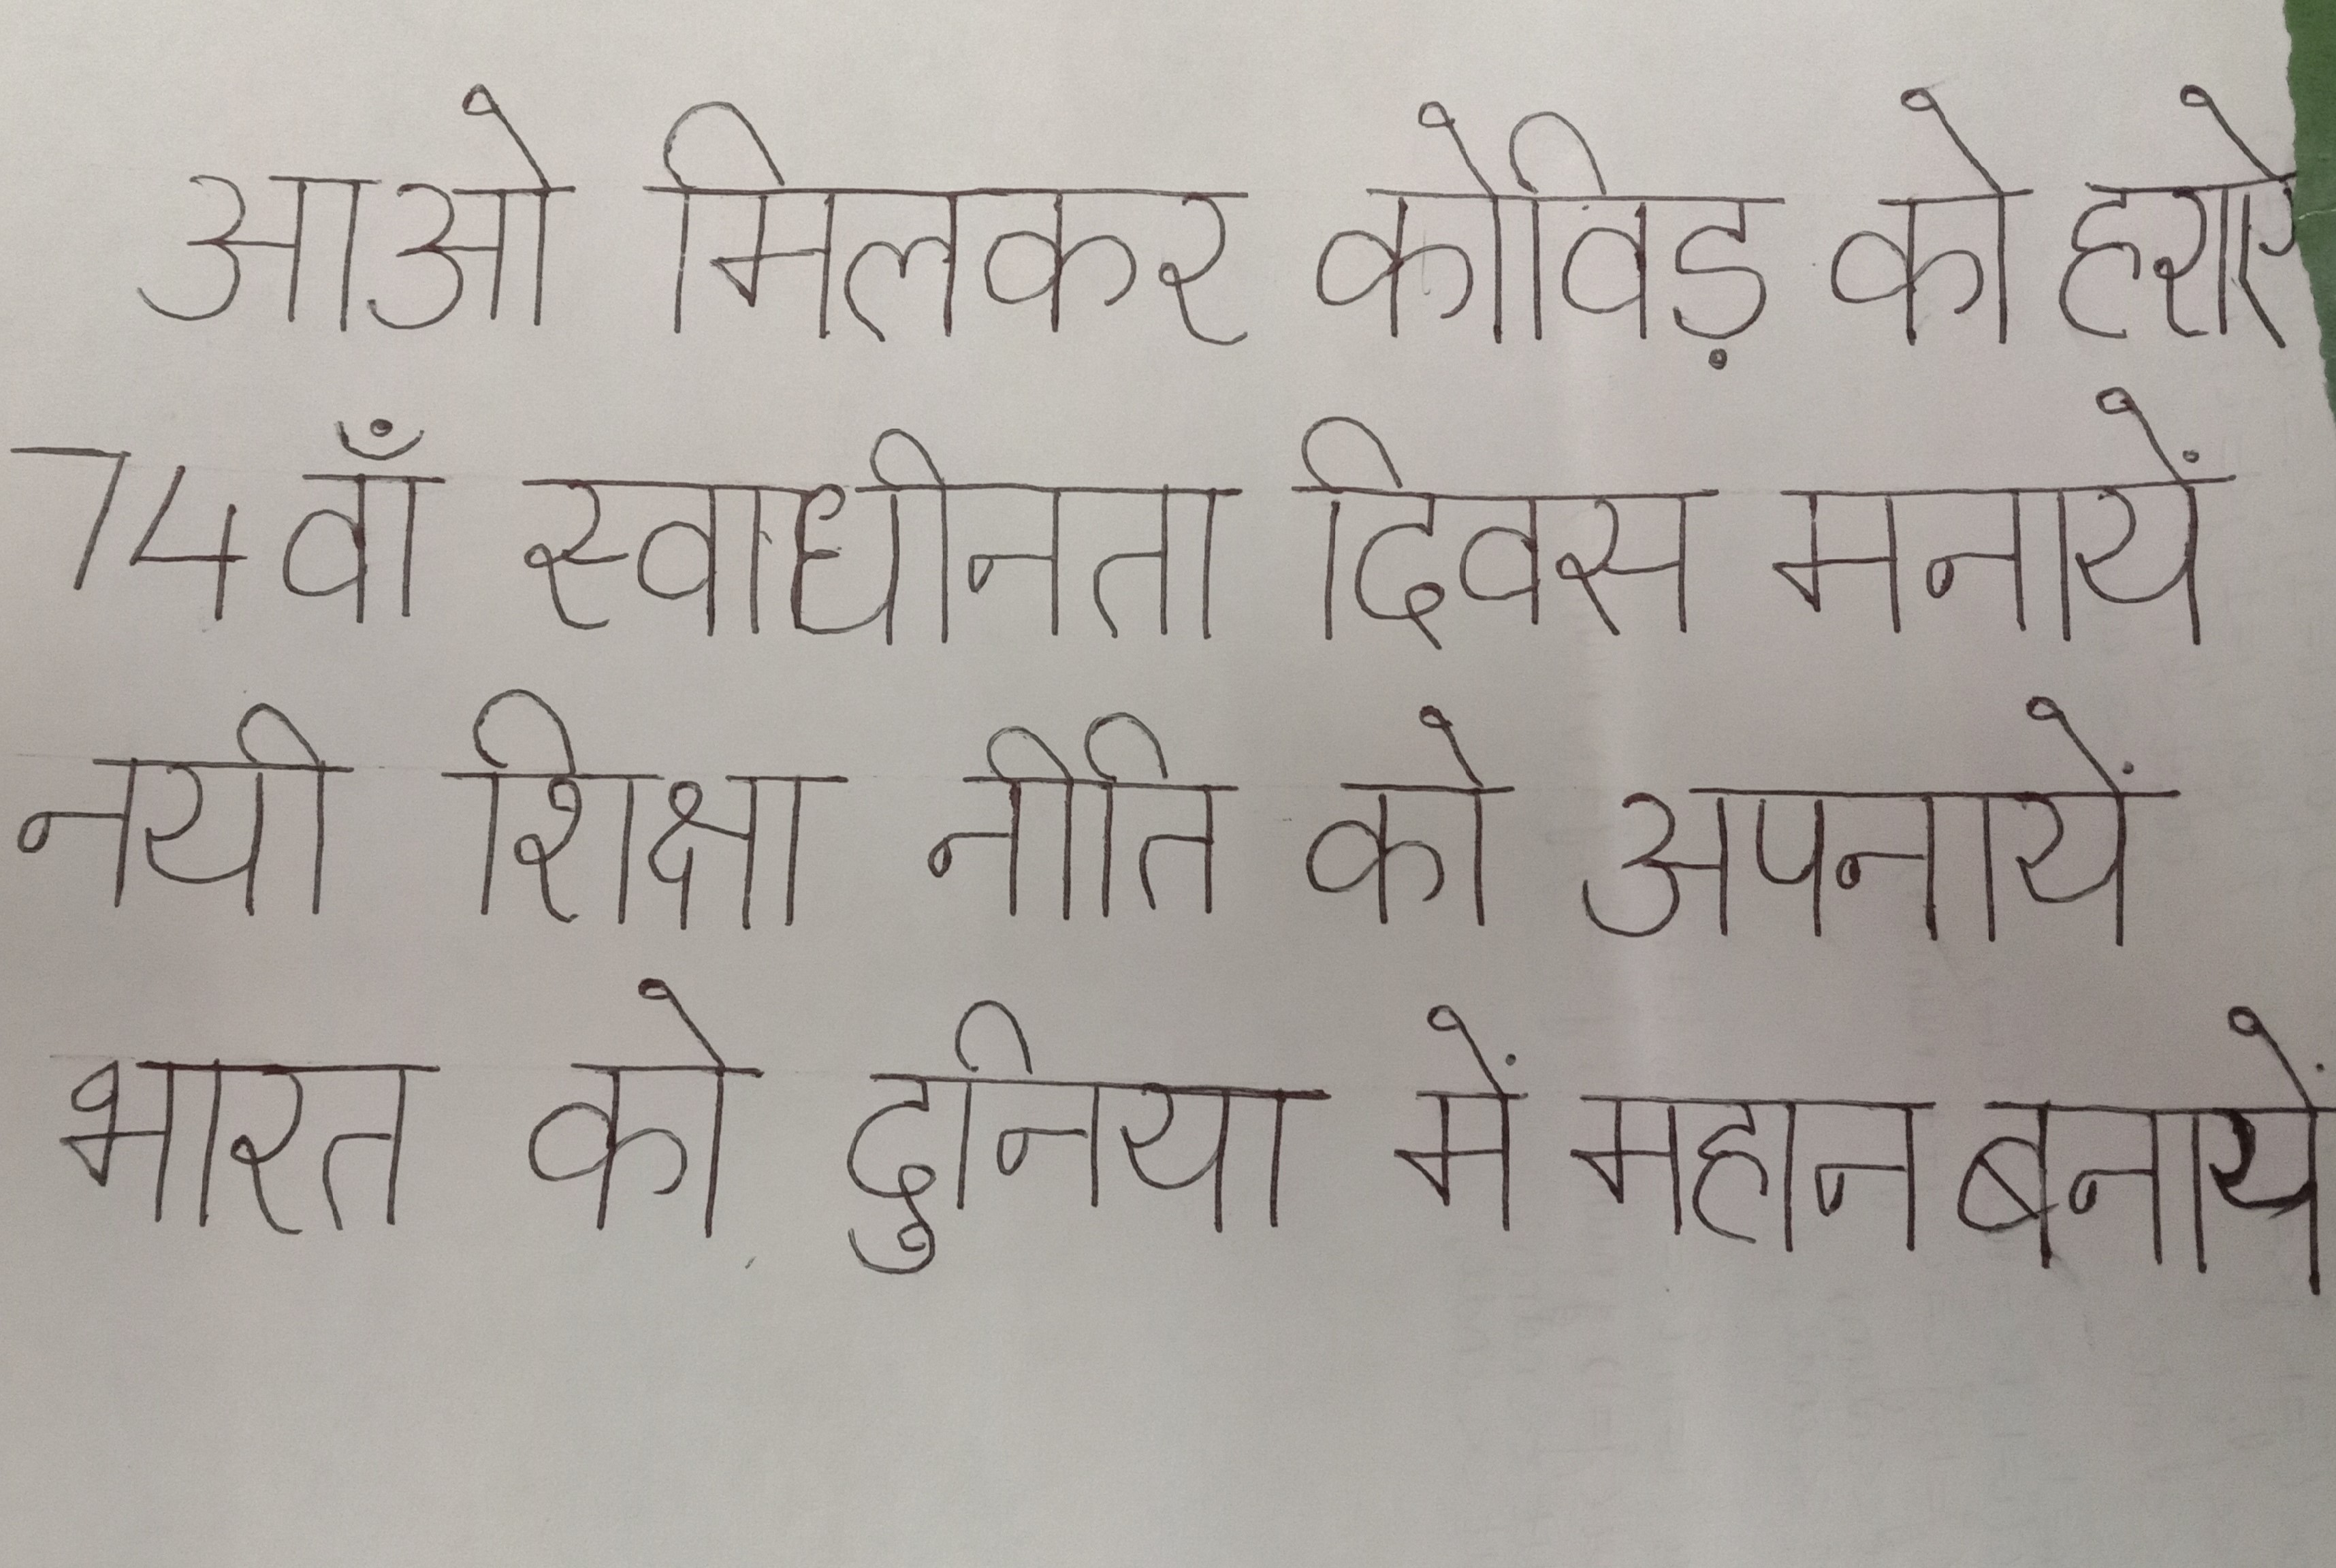 आओ मिलकर कोविड़ को हराऐ
74वाँ स्वाधीनता दिवस मनायें
नयी शिक्षा नीति को अपनायें
भारत को दुनिया में महान बनायें